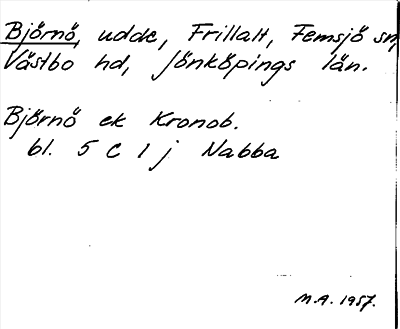 Björnö, udde, Frillalt, Femsjö sn,
Västbo hd, Jönköpings län.
Björnö ek Kronob.
bl. 5 C 1 j Nabba
M.A. 1957.